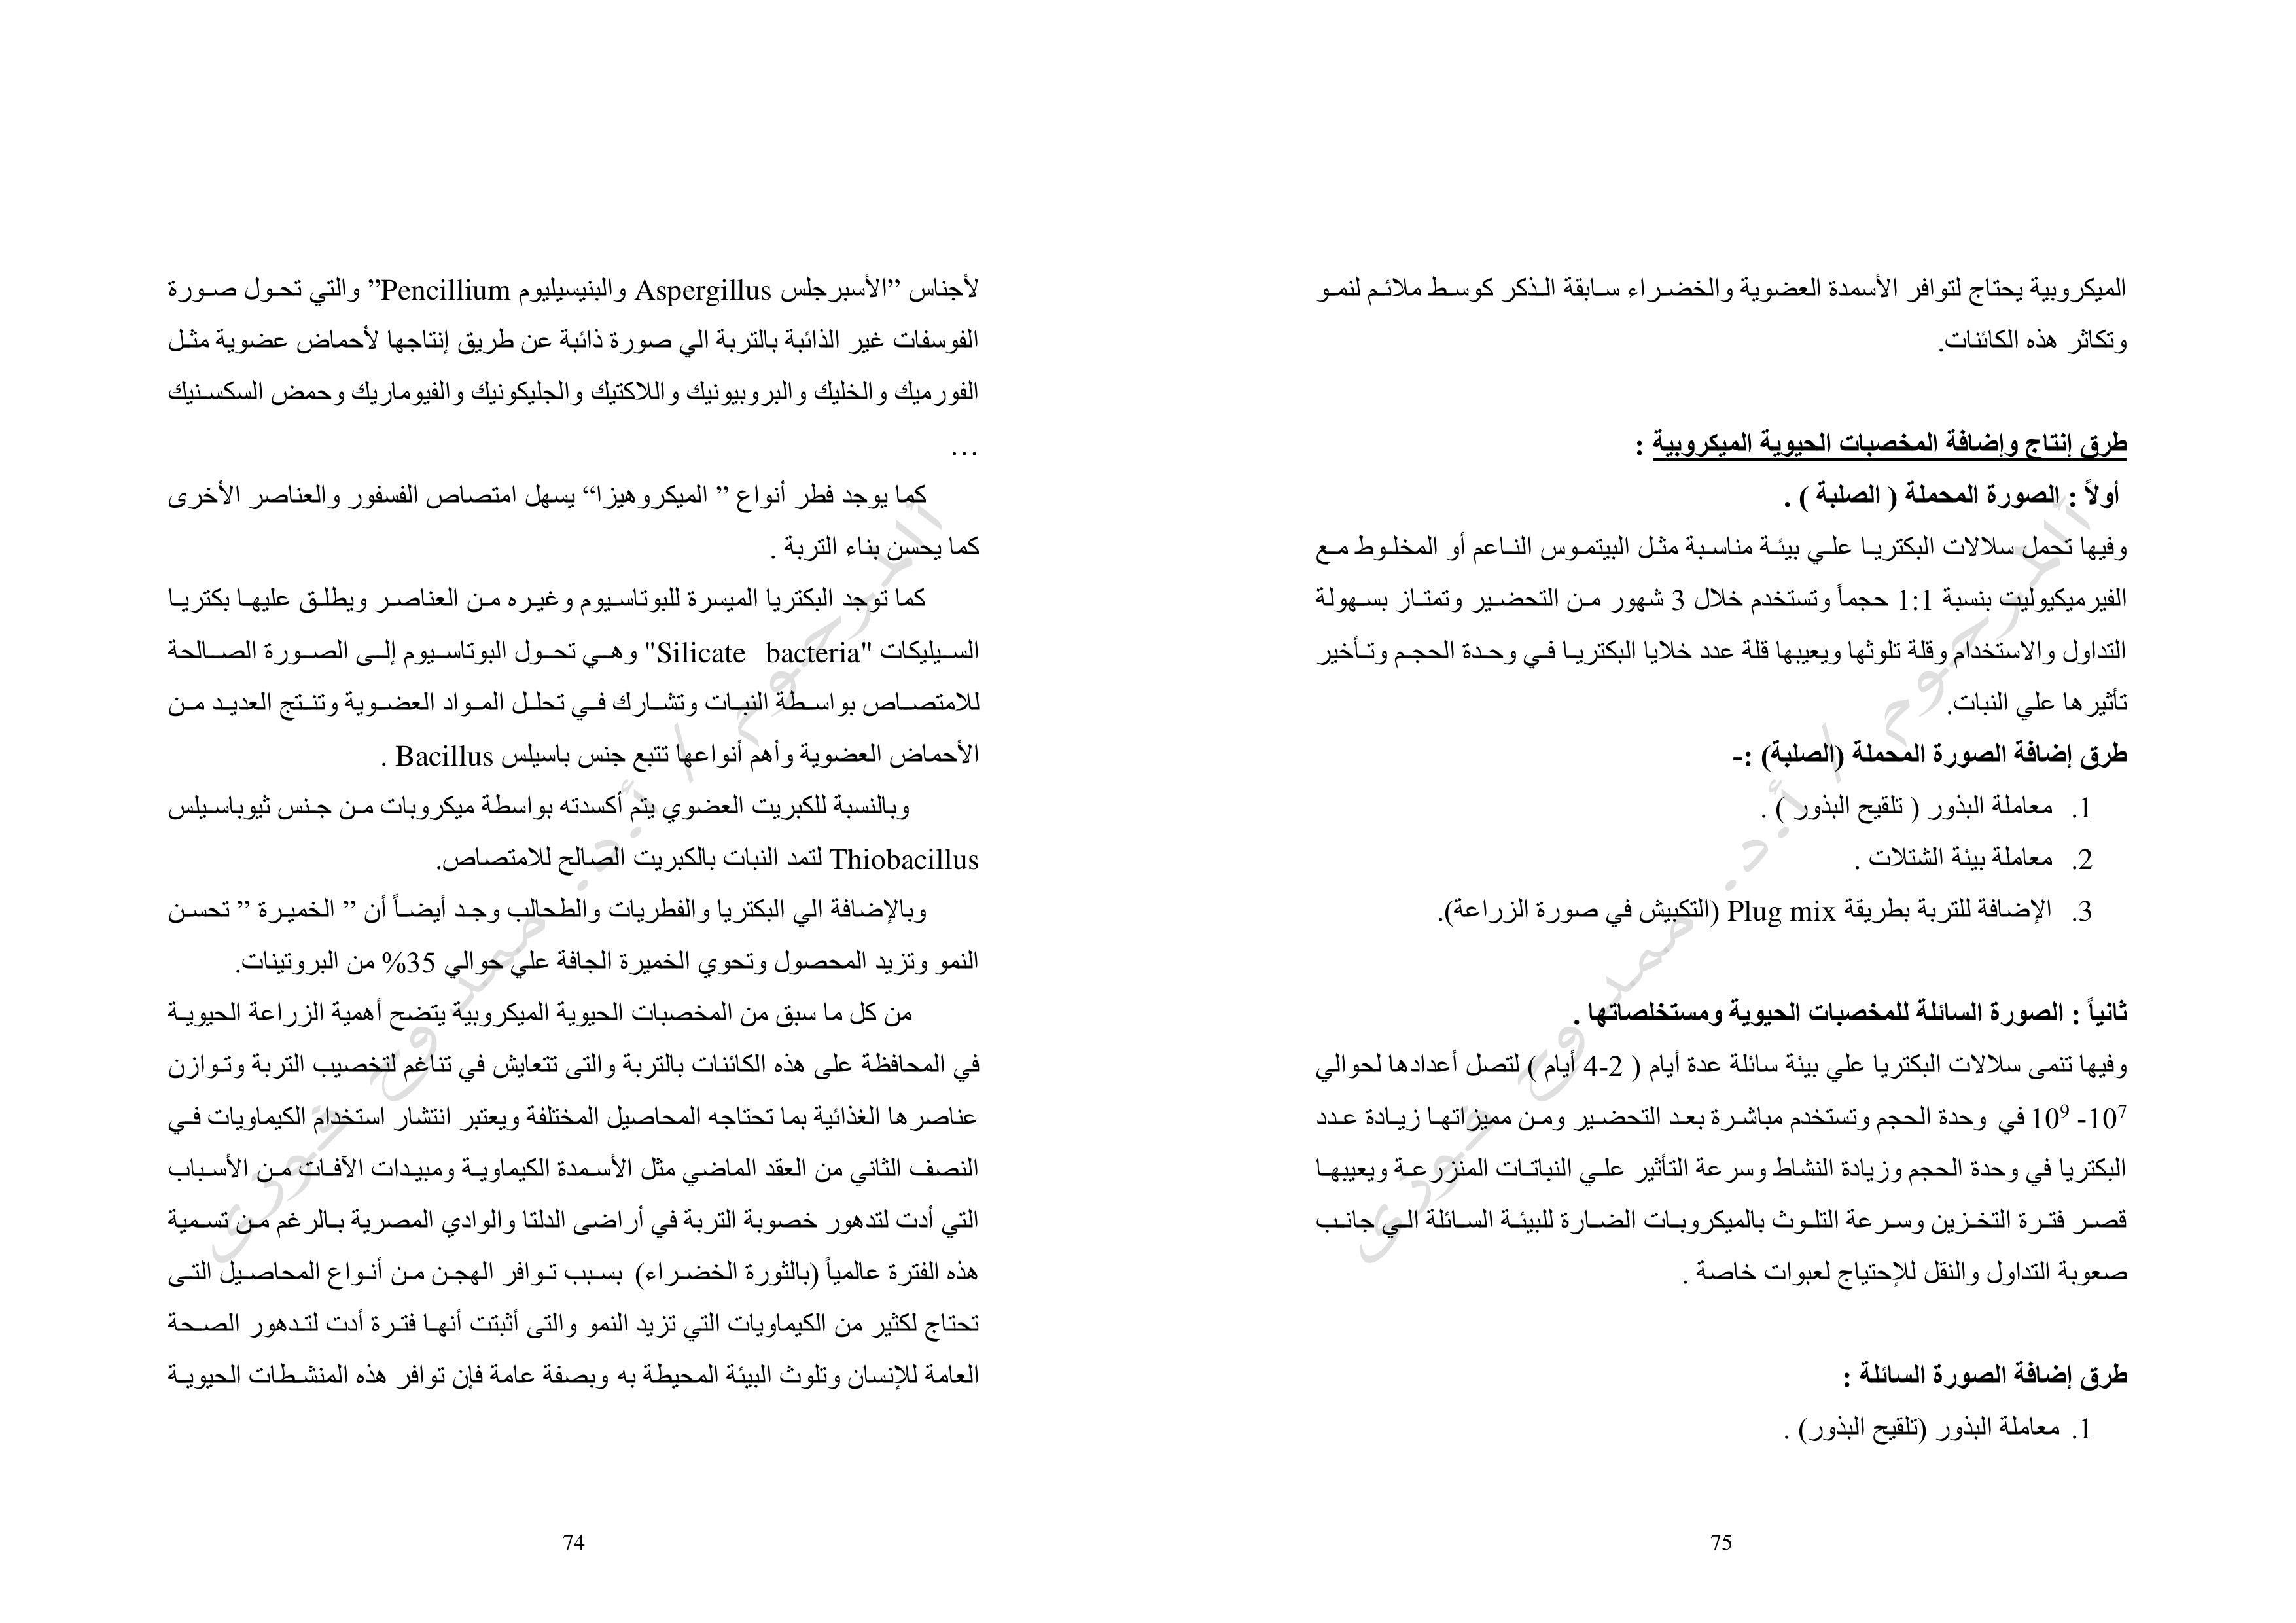 لأجناس ”الأسبرجلس Aspergillus والبنيسيليوم Pencillium” والتي تحول صورة
الفوسفات غير الذائبة بالتربة الي صورة ذائبة عن طريق إنتاجها لأحماض عضوية مثل
الفورميك والخليك والبروبيونيك واللاكتيك والجليكونيك والفيوماريك وحمض السكسنيك
...
كما يوجد فطر أنواع ” الميكروهيزا“ يسهل امتصاص الفسفور والعناصر الأخرى
كما يحسن بناء التربة .
كما توجد البكتريا الميسرة للبوتاسيوم وغيره من العناصر ويطلق عليها بكتريا
السيليكات "Silicate bacteria" وهي تحول البوتاسيوم إلى الصورة الصالحة
للامتصاص بواسطة النبات وتشارك في تحلل المواد العضوية وتنتج العديد من
الأحماض العضوية وأهم أنواعها تتبع جنس باسيلس Bacillus .
وبالنسبة للكبريت العضوي يتم أكسدته بواسطة ميكروبات من جنس ثيوباسيلس
Thiobacillus لتمد النبات بالكبريت الصالح للامتصاص.
وبالإضافة الي البكتريا والفطريات والطحالب وجد أيضاً أن ” الخميرة ” تحسن
النمو وتزيد المحصول وتحوي الخميرة الجافة علي حوالي 35% من البروتينات.
من كل ما سبق من المخصبات الحيوية الميكروبية يتضح أهمية الزراعة الحيوية
في المحافظة على هذه الكائنات بالتربة والتى تتعايش في تناغم لتخصيب التربة وتوازن
عناصرها الغذائية بما تحتاجه المحاصيل المختلفة ويعتبر انتشار استخدام الكيماويات في
النصف الثاني من العقد الماضي مثل الأسمدة الكيماوية ومبيدات الآفات من الأسباب
التي أدت لتدهور خصوبة التربة في أراضى الدلتا والوادي المصرية بالرغم من تسمية
هذه الفترة عالمياً (بالثورة الخضراء) بسبب توافر الهجن من أنواع المحاصيل التى
تحتاج لكثير من الكيماويات التي تزيد النمو والتى أثبتت أنها فترة أدت لتدهور الصحة
العامة للإنسان وتلوث البيئة المحيطة به وبصفة عامة فإن توافر هذه المنشطات الحيوية
74
المرحوم / أ.د. ممدوح فوزى
الميكروبية يحتاج لتوافر الأسمدة العضوية والخضراء سابقة الذكر كوسط ملائم لنمو
وتكاثر هذه الكائنات.
طرق إنتاج وإضافة المخصبات الحيوية الميكروبية :
أولاً : الصورة المحملة ( الصلبة ) .
وفيها تحمل سلالات البكتريا علي بيئة مناسبة مثل البيتموس الناعم أو المخلوط مع
الفيرميكيوليت بنسبة 1:1 حجماً وتستخدم خلال 3 شهور من التحضير وتمتاز بسهولة
التداول والاستخدام وقلة تلوثها ويعيبها قلة عدد خلايا البكتريا في وحدة الحجم وتأخير
تأثيرها علي النبات.
طرق إضافة الصورة المحملة (الصلبة) :-
1. معاملة البذور ( تلقيح البذور ) .
2. معاملة بيئة الشتلات .
3. الإضافة للتربة بطريقة Plug mix (التكبيش في صورة الزراعة).
ثانياً : الصورة السائلة للمخصبات الحيوية ومستخلصاتها .
وفيها تنمى سلالات البكتريا علي بيئة سائلة عدة أيام ( 2-4 أيام ) لتصل أعدادها لحوالي
10⁷- 10⁹ في وحدة الحجم وتستخدم مباشرة بعد التحضير ومن مميزاتها زيادة عدد
البكتريا في وحدة الحجم وزيادة النشاط وسرعة التأثير علي النباتات المنزرعة ويعيبها
قصر فترة التخزين وسرعة التلوث بالميكروبات الضارة للبيئة السائلة الي جانب
صعوبة التداول والنقل للإحتياج لعبوات خاصة .
طرق إضافة الصورة السائلة :
1. معاملة البذور (تلقيح البذور) .
75
المرحوم / أ.د. ممدوح فوزى